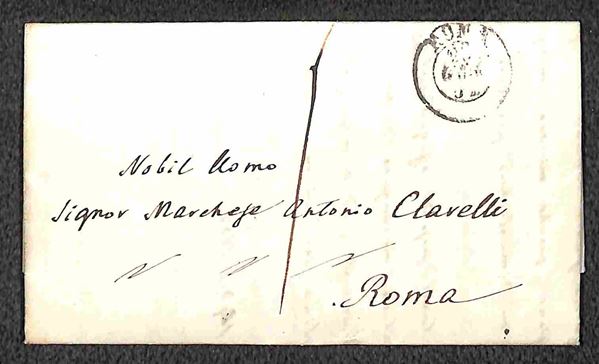 ROMA
Nobil Uomo
Signor Marchese Antonio Clavelli
Roma